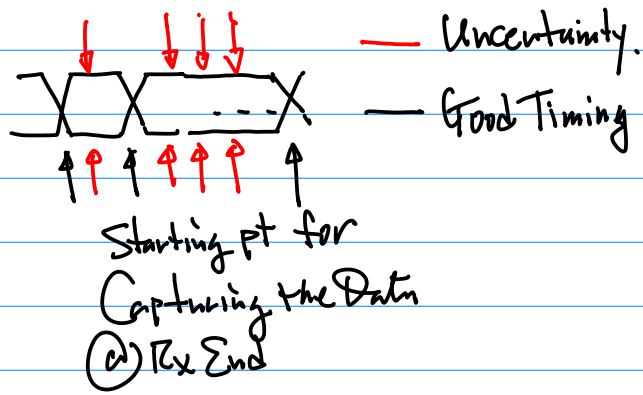 Uncertainty.
Good Timing
Starting pt for
Capturing the Data
@ Rx End